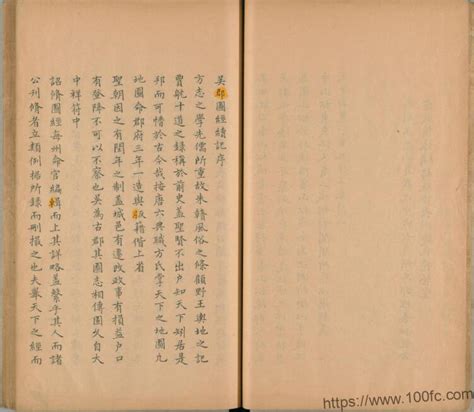 吳郡圖經續記序
方志之學先儒所重故朱贛風俗之條顧野王輿地之記
賈躭十道之錄稱於前史蓋聖賢不出戶知天下矧居是
邦而可懵於古今哉按唐六典職方氏掌天下之地圖凡
地圖命郡府三年一造與版籍偕上省
聖朝因之有閏年之制蓋城邑有遷改政事有損益戶口
有登降不可以不察也吳為古郡其圖志相傳固久自大
中祥符中
詔脩圖經每州命官編輯而上其詳略蓋繫乎其人而諸
公刊脩者立類例據所錄而刪撮之也夫舉天下之經而
https://www.100fc.com